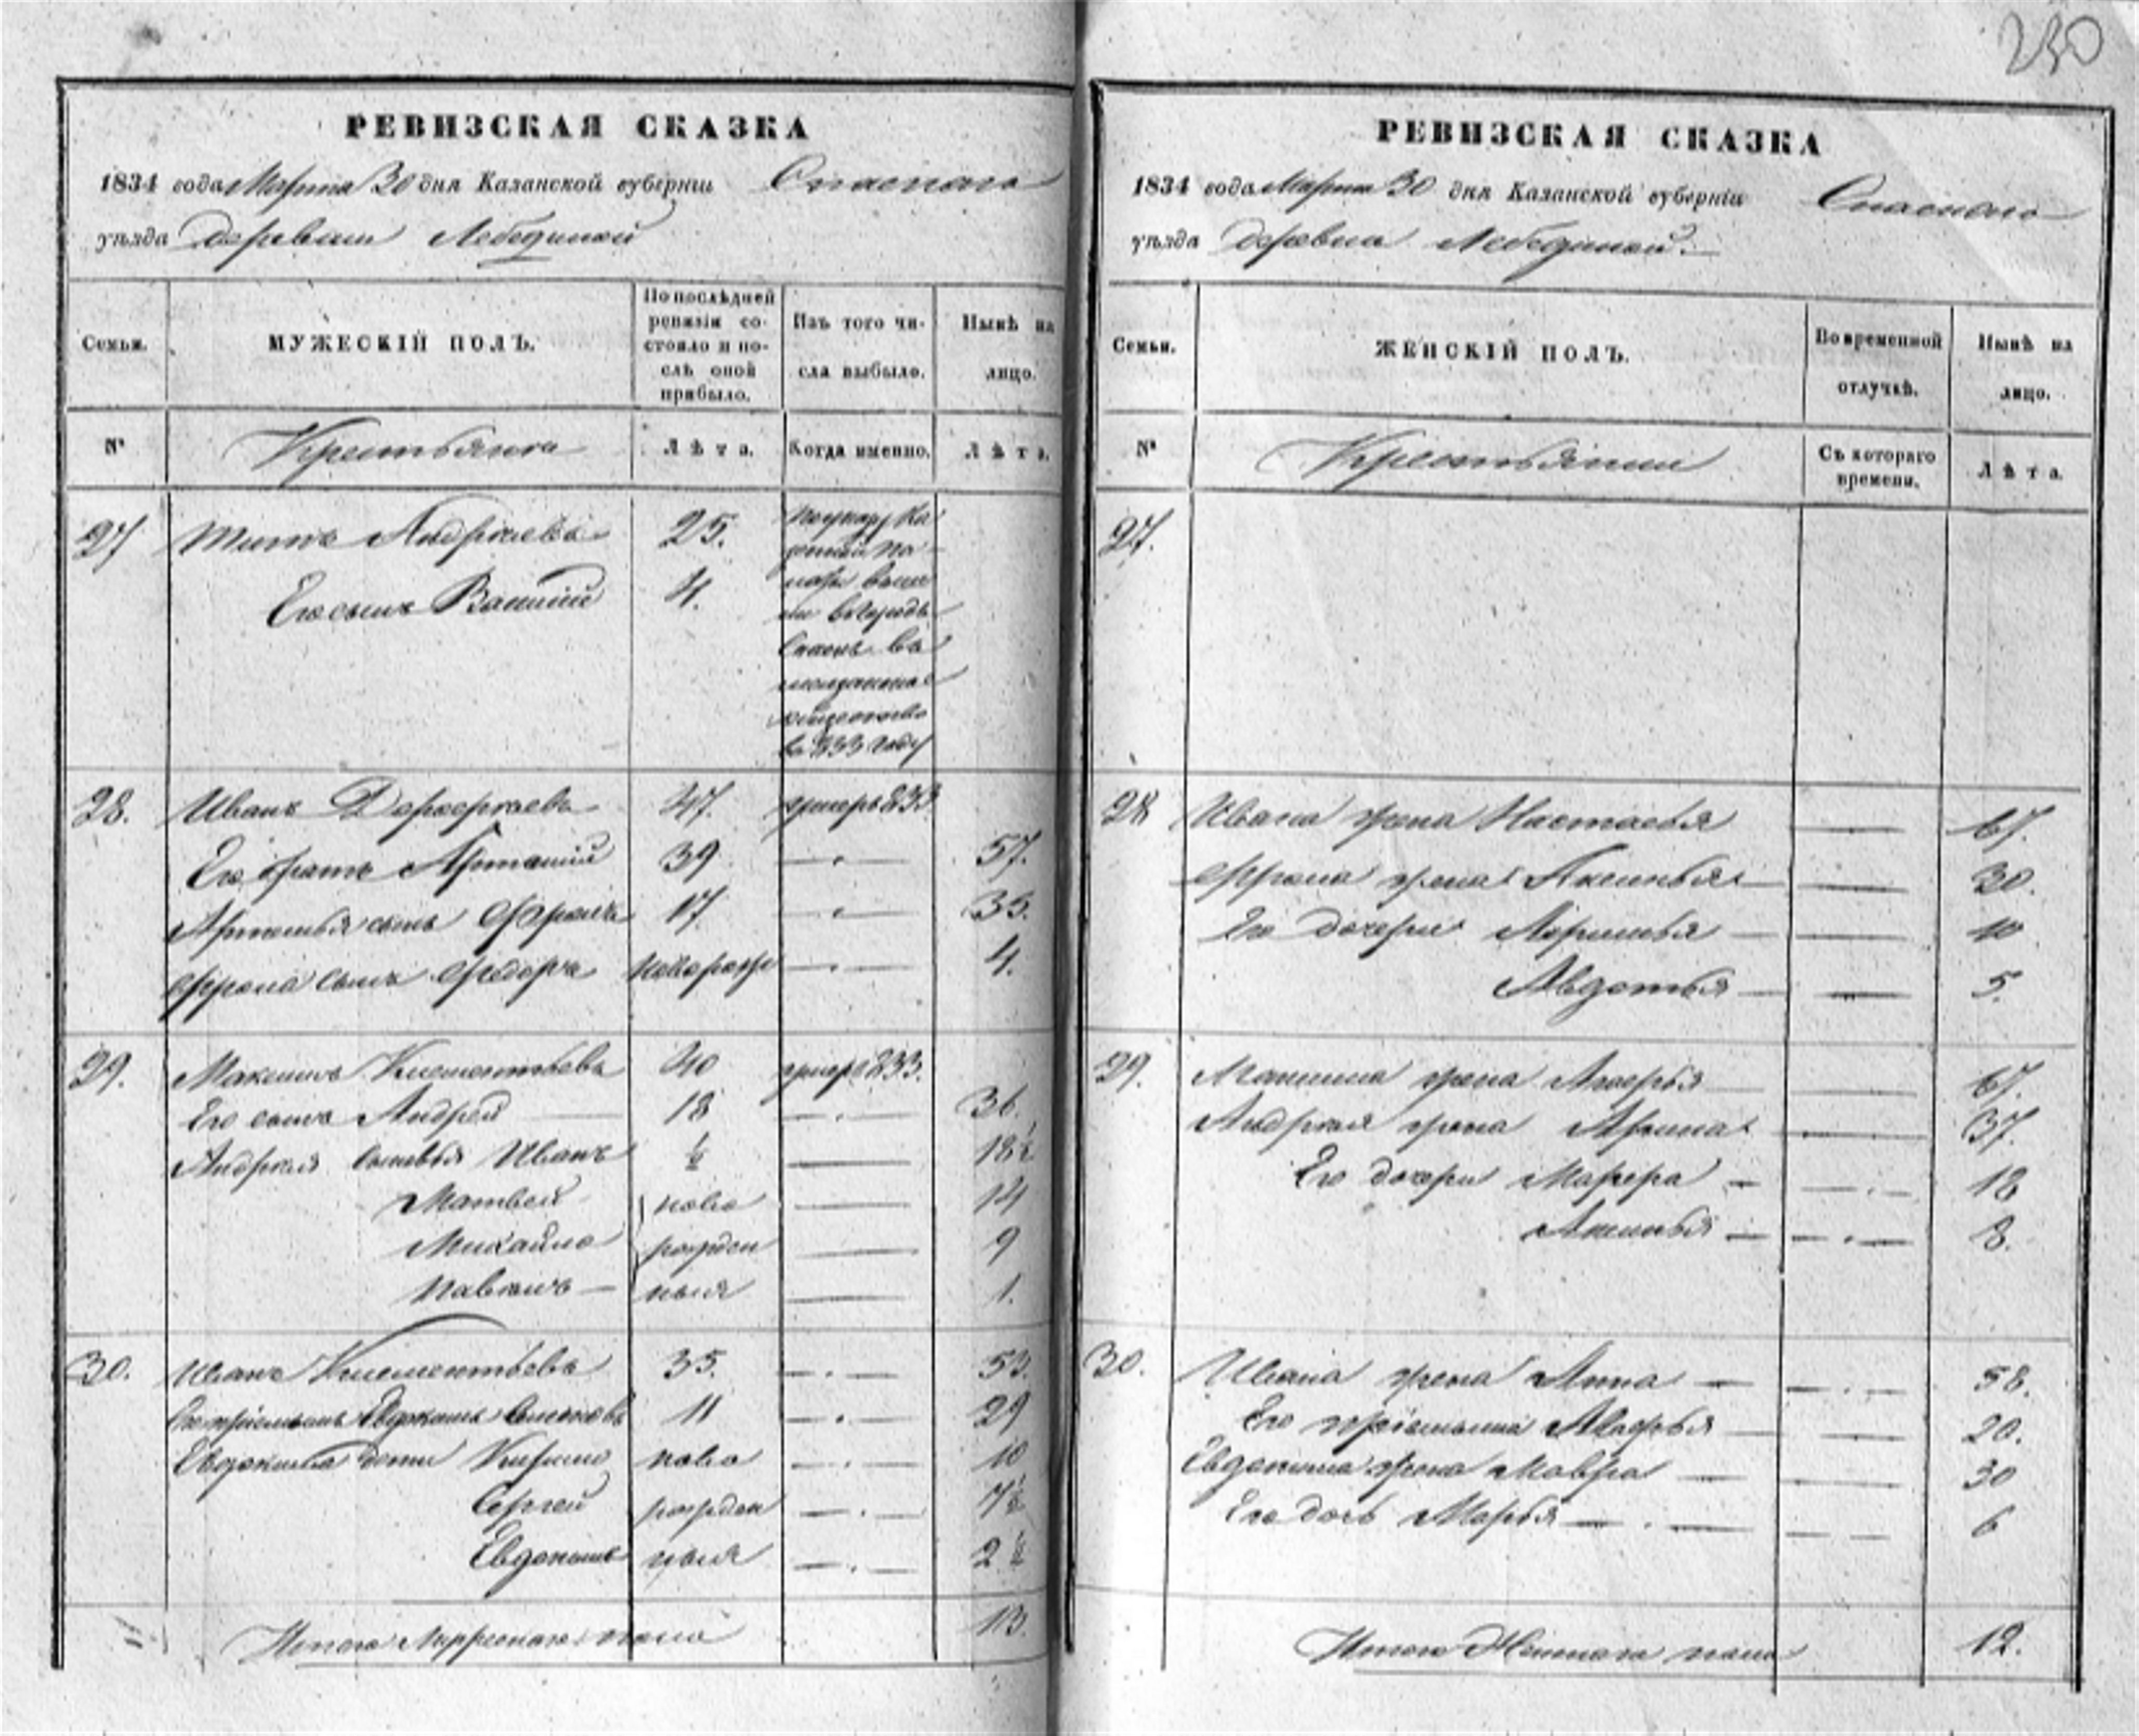 230
РЕВИЗСКАЯ СКАЗКА
1834 года Марта 30 дня Казанской губерніи Спаскаго
уѣзда деревни Лебединой
Семьи.
МУЖЕСКІЙ ПОЛЪ.
По послѣдней
ревизіи со-
стояло и по-
слѣ оной
прибыло.
Изъ того чи-
сла выбыло.
Нынѣ на
лицо.
№
Крестьяне
Лѣта.
Когда именно.
Лѣта.
27
Титъ Андреевъ
25.
Его сынъ Василий
4.
по указу Ка
зенной па
латы
въ городъ
Спаскъ въ
мещанское
общество
в 833 году
28.
Иванъ
47.
умеръ 833
Его братъ
39
57.
сынъ
17.
35.
сынъ Федоръ
новорож
4.
29.
Максимъ Клементьевъ
40
умеръ 833.
Его сынъ Андрей
18
36.
Андрея сыновья Иванъ
½
18½
Матвей
ново
14
Михайло
рожден
9
Павелъ
ныя
1.
30.
Иванъ Клементьевъ
35.
53.
Его приемышъ Евдокимъ
11
29
Евдокима дети Кирило
ново
10
Сергей
рожден
7½
Евдокимъ
ныя
2½
Итого Мужескаго пола
13.
РЕВИЗСКАЯ СКАЗКА
1834 года Марта 30 дня Казанской губерніи Спаскаго
уѣзда деревни Лебединой.
Семьи.
ЖЕНСКІЙ ПОЛЪ.
Во временной
отлучкѣ.
Нынѣ на
лицо.
№
Крестьянки
Съ котораго
времени.
Лѣта.
27.
28
Ивана жена Настасья
67.
жена Аксинья
30.
Его дочери
10
Авдотья
5.
29.
Максима жена
67.
Андрея жена Арина
37.
Его дочери Марфа
18
Аксинья
8.
30.
Ивана жена Анна
58.
Его
20.
Евдокима жена Мавра
30
Его дочь Марья
6
Итого Женскаго пола
12.